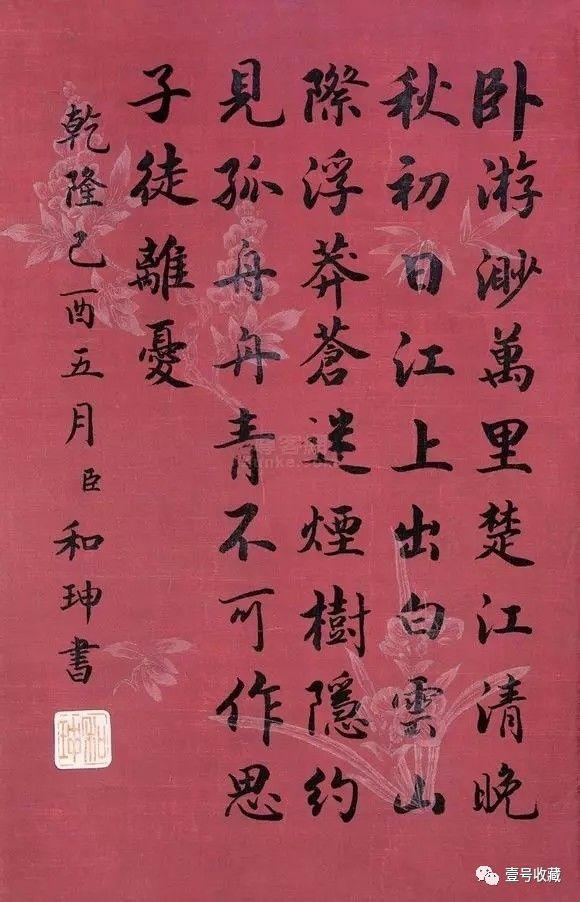 卧游渺萬里楚江清晚
秋初日江上出白雲山
際浮莽蒼迷煙樹隱約
見孤舟舟青不可作思
子徒離憂
乾隆己酉五月臣和珅書
和珅
壹号收藏